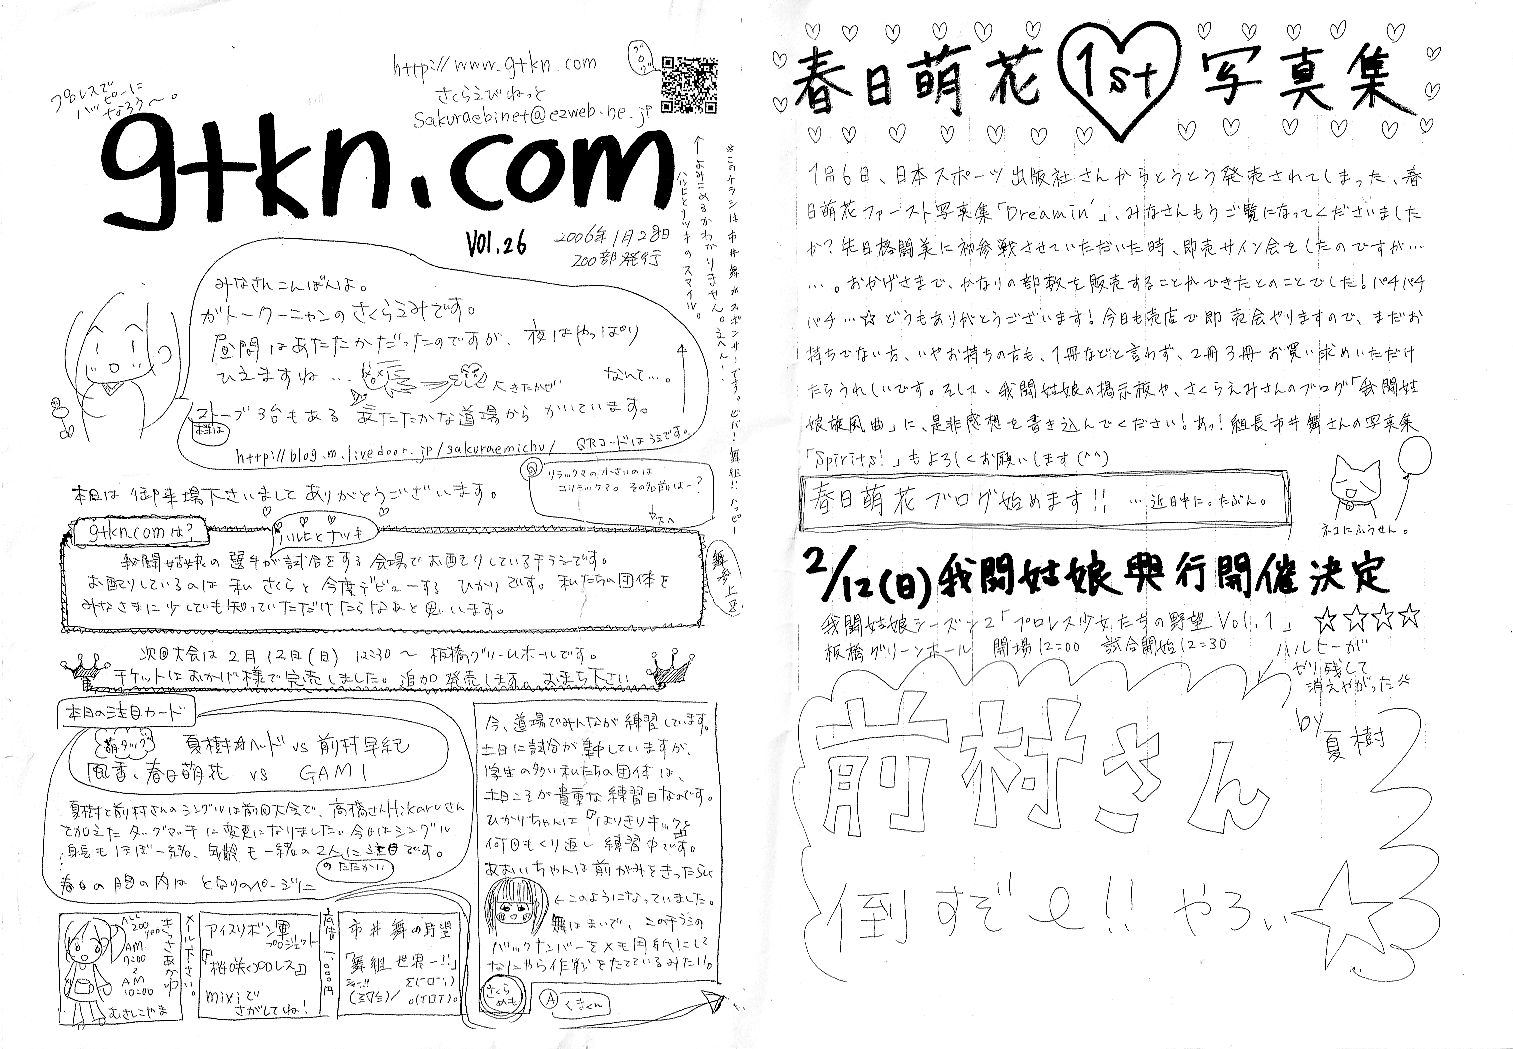 プロレスで
ハッピーに
なろう〜。
http://www.gtkn.com
さくらえびねっと
sakuraebinet@ezweb.ne.jp
gtkn.com
Vol.26
2006年1月28日
200部発行
※このチラシは市井舞がスポンサーです。ビバ!舞組!!
↑よみこめるかわかりません。えへん!
ハルヒとナッキのスマイル。
みなさんこんばんは。
がトークーニャンのさくらえみです。
昼間はあたたかだったのですが、夜はやっぱり
ひえますね…
大きたかぜ
なんて…。
ストーブ3台もある あたたかな道場から かいています。
http://blog.m.livedoor.jp/sakuraemichu/ QRコードはうえです。
本日は御来場下さいましてありがとうございます。
Q リラックマの小さいのは
コリラックマ。その名前は-?
gtkn.comは?
ハルヒとナッキ
我闘姑娘の選手が試合をする会場でお配りしているチラシです。
お配りしているのは私さくらと今度デビューするひかりです。私たちの団体を
みなさまに少しでも知っていただけたらなあと思います。
舞参上
次回大会は2月12日(日) 12:30〜板橋グリーンホールです。
チケットはおかげ様で完売しました。追加発売します。お待ち下さい
本日の注目カード
萌タッグ
夏樹☆ヘッド vs 前村早紀
風香、春日萌花 vs GAMI
夏樹と前村さんのシングルは前回大会で、高橋さんHikaruさん
で加えたタッグマッチに変更になりました。今日はシングル
身長もほぼ一緒、年齢も一緒の2人に注目です。
のたたかい
春日の胸の内は となりのページに
今、道場でみんなが練習しています。
土日に試合が集中していますが、
学生の多い私たちの団体は、
土日こそが貴重な練習日なのです。
ひかりちゃんは「はりきりキック」を
何回もくり返し練習中です。
あおいちゃんは前がみをきったら
←このようになっていました。
舞はまいで、このチラシの
バックナンバーをメモ用紙にして
なにやら作戦をたてているみたい。
さくら
めも
A くまくん
AM
7:00
AM
10:00
きささあかゆ
メール下さい。
むさしこやま
アイスリボン軍
プロジェクト
『桜咲くプロレス』
mixiで
さがしてね!
広告 1,000円
市井舞の野望
「舞組世界一!!」
春日萌花 1st 写真集
1月6日、日本スポーツ出版社さんからとうとう発売されてしまった、春
日萌花ファースト写真集「Dreamin'」、みなさんもうご覧になってくださいました
か?先日格闘美に初参戦させていただいた時、即売サイン会をしたのですが…
…。おかげさまで、かなりの部数を販売することができたとのことでした!パチパチ
パチ…☆どうもありがとうございます!今日も売店で即売会やりますので、まだお
持ちでない方、いやお持ちの方も、1冊などと言わず、2冊3冊お買い求めいただけ
たらうれしいです。そして、我闘姑娘の掲示板や、さくらえみさんのブログ「我闘姑
娘旋風曲」に、是非感想を書き込んでください!あっ!組長市井舞さんの写真集
「Spirits!」もよろしくお願いします(^^)
春日萌花ブログ始めます!! …近日中に。たぶん。
ネコにふうせん。
2/12(日)我闘姑娘興行開催決定
我闘姑娘シーズン2「プロレス少女たちの野望Vol.1」 ☆☆☆☆
板橋グリーンホール 開場12:00 試合開始12:30
ハルヒーが
やり残して
消えやがった
by
夏樹
前村さん
倒すぞe!! やろぃ☆